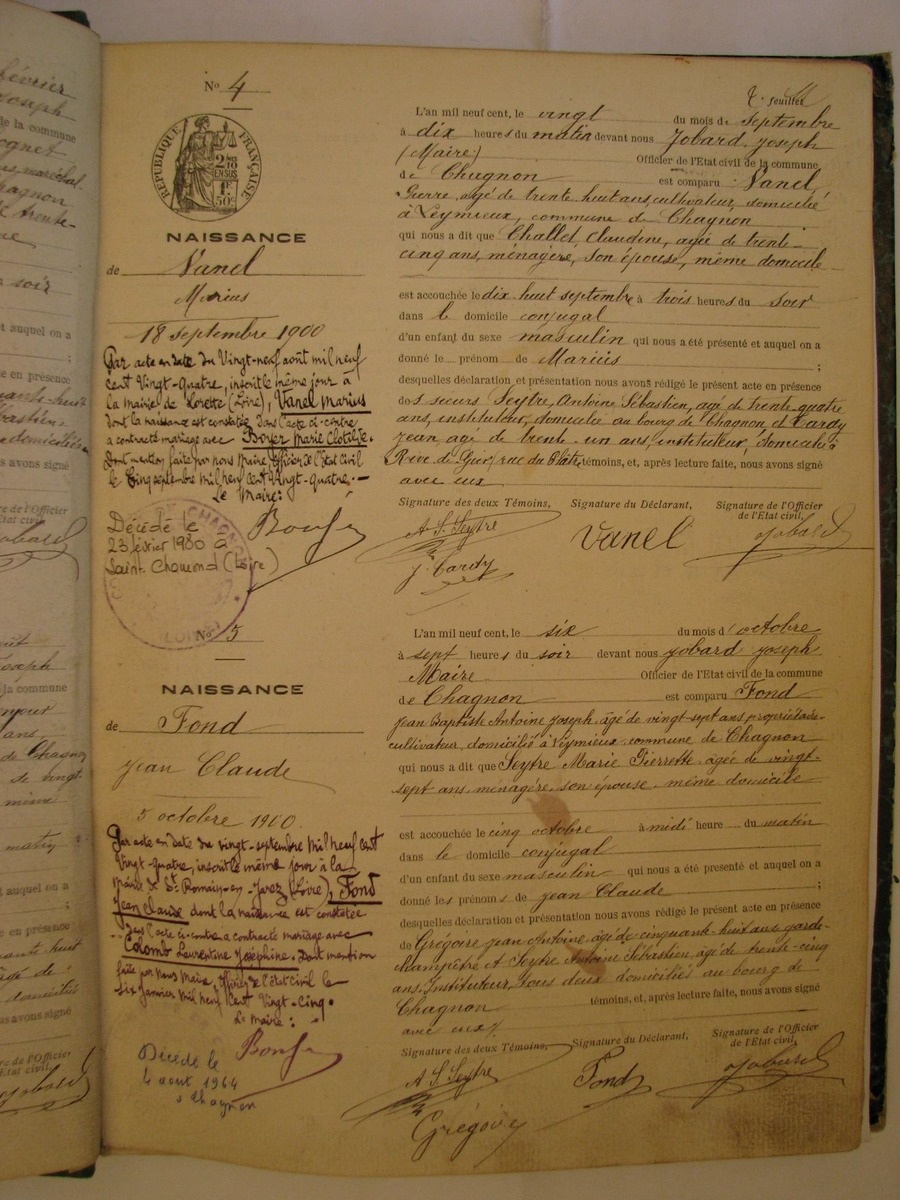 février
Joseph
de la commune
maréchal
Chagnon
trente-
soir
et auquel on a
;
en présence
domicilié
s avons signé
re de l'Officier
Etat civil,
Jobard
Joseph
la commune
ans
de Chagnon
de vingt-
même
matin
auquel on a
;
en présence
huit
âgé de
domicilié
us avons signé
re de l'Officier
Etat civil,
Jobard
No 4
RÉPUBLIQUE FRANÇAISE
2 10mes
EN SUS
1F.
50c
NAISSANCE
de Vanel
Marius
18 septembre 1900
Par acte en date du Vingt-neuf août mil neuf
cent Vingt-quatre, inscrit le même jour à
la mairie de Lorette (Loire), Vanel Marius
dont la naissance est constatée dans l'acte ci-contre
a contracté mariage avec Boyer Marie Clotilde.
Dont mention faite par nous Maire, officier de l'état civil
le Cinq septembre mil neuf cent Vingt-quatre.-
Le Maire:
Décédé le
23 février 1980 à
Saint Chamond (Loire)
7e feuillet
L'an mil neuf cent, le vingt du mois de Septembre
à dix heures du matin devant nous Jobard Joseph
(Maire) Officier de l'Etat civil de la commune
de Chagnon est comparu Vanel
Pierre, agé de trente huit ans cultivateur, domicilié
à Leymieux, commune de Chagnon
qui nous a dit que Challet Claudine, agée de trente-
cinq ans, ménagère, son épouse, même domicile
est accouchée le dix huit septembre à trois heures du soir
dans le domicile conjugal
d'un enfant du sexe masculin qui nous a été présenté et auquel on a
donné le prénom de Marius ;
desquelles déclaration et présentation nous avons rédigé le présent acte en présence
des sieurs Seytre, Antoine Sébastien, agé de trente-quatre
ans, instituteur, domicilié au bourg de Chagnon et Cardy
Jean agé de trente-un ans, instituteur, domicilié à
Rive de Gier, rue du Plâtre, témoins, et, après lecture faite, nous avons signé
avec eux
Signature des deux Témoins, Signature du Déclarant, Signature de l'Officier
de l'Etat civil,
A S Seytre Vanel Jobard
J. Cardy
No 5
NAISSANCE
de Fond
Jean Claude
5 octobre 1900
Par acte en date du vingt-septembre Mil neuf cent
Vingt-quatre, inscrit le même jour à la
Mairie de St Romain-en-Jarez (Loire), Fond
Jean Claude dont la naissance est constatée
dans l'acte ci-contre a contracté mariage avec
Colomb Laurentine Joséphine. Dont mention
faite par nous Maire, officier de l'état civil le
Six Janvier Mil neuf Cent Vingt-Cinq.
Le Maire:
Décédé le
4 aout 1964
à Chagnon
L'an mil neuf cent, le six du mois d'octobre
à sept heures du soir devant nous Jobard Joseph
Maire Officier de l'Etat civil de la commune
de Chagnon est comparu Fond
Jean Baptiste Antoine Joseph, âgé de vingt-sept ans propriétaire-
cultivateur, domicilié à Leymieux commune de Chagnon
qui nous a dit que Seytre Marie Pierrette agée de vingt-
sept ans, ménagère, son épouse, même domicile
est accouchée le cinq octobre à midi heure du matin
dans le domicile conjugal
d'un enfant du sexe masculin qui nous a été présenté et auquel on a
donné les prénoms de Jean Claude ;
desquelles déclaration et présentation nous avons rédigé le présent acte en présence
de Grégoire Jean Antoine âgé de cinquante-huit ans garde-
champêtre et Seytre Antoine Sébastien, agé de trente-cinq
ans, Instituteur, tous deux domiciliés au bourg de
Chagnon témoins, et, après lecture faite, nous avons signé
avec eux
Signature des deux Témoins, Signature du Déclarant, Signature de l'Officier
de l'Etat civil,
A S Seytre Fond Jobard
Grégoire